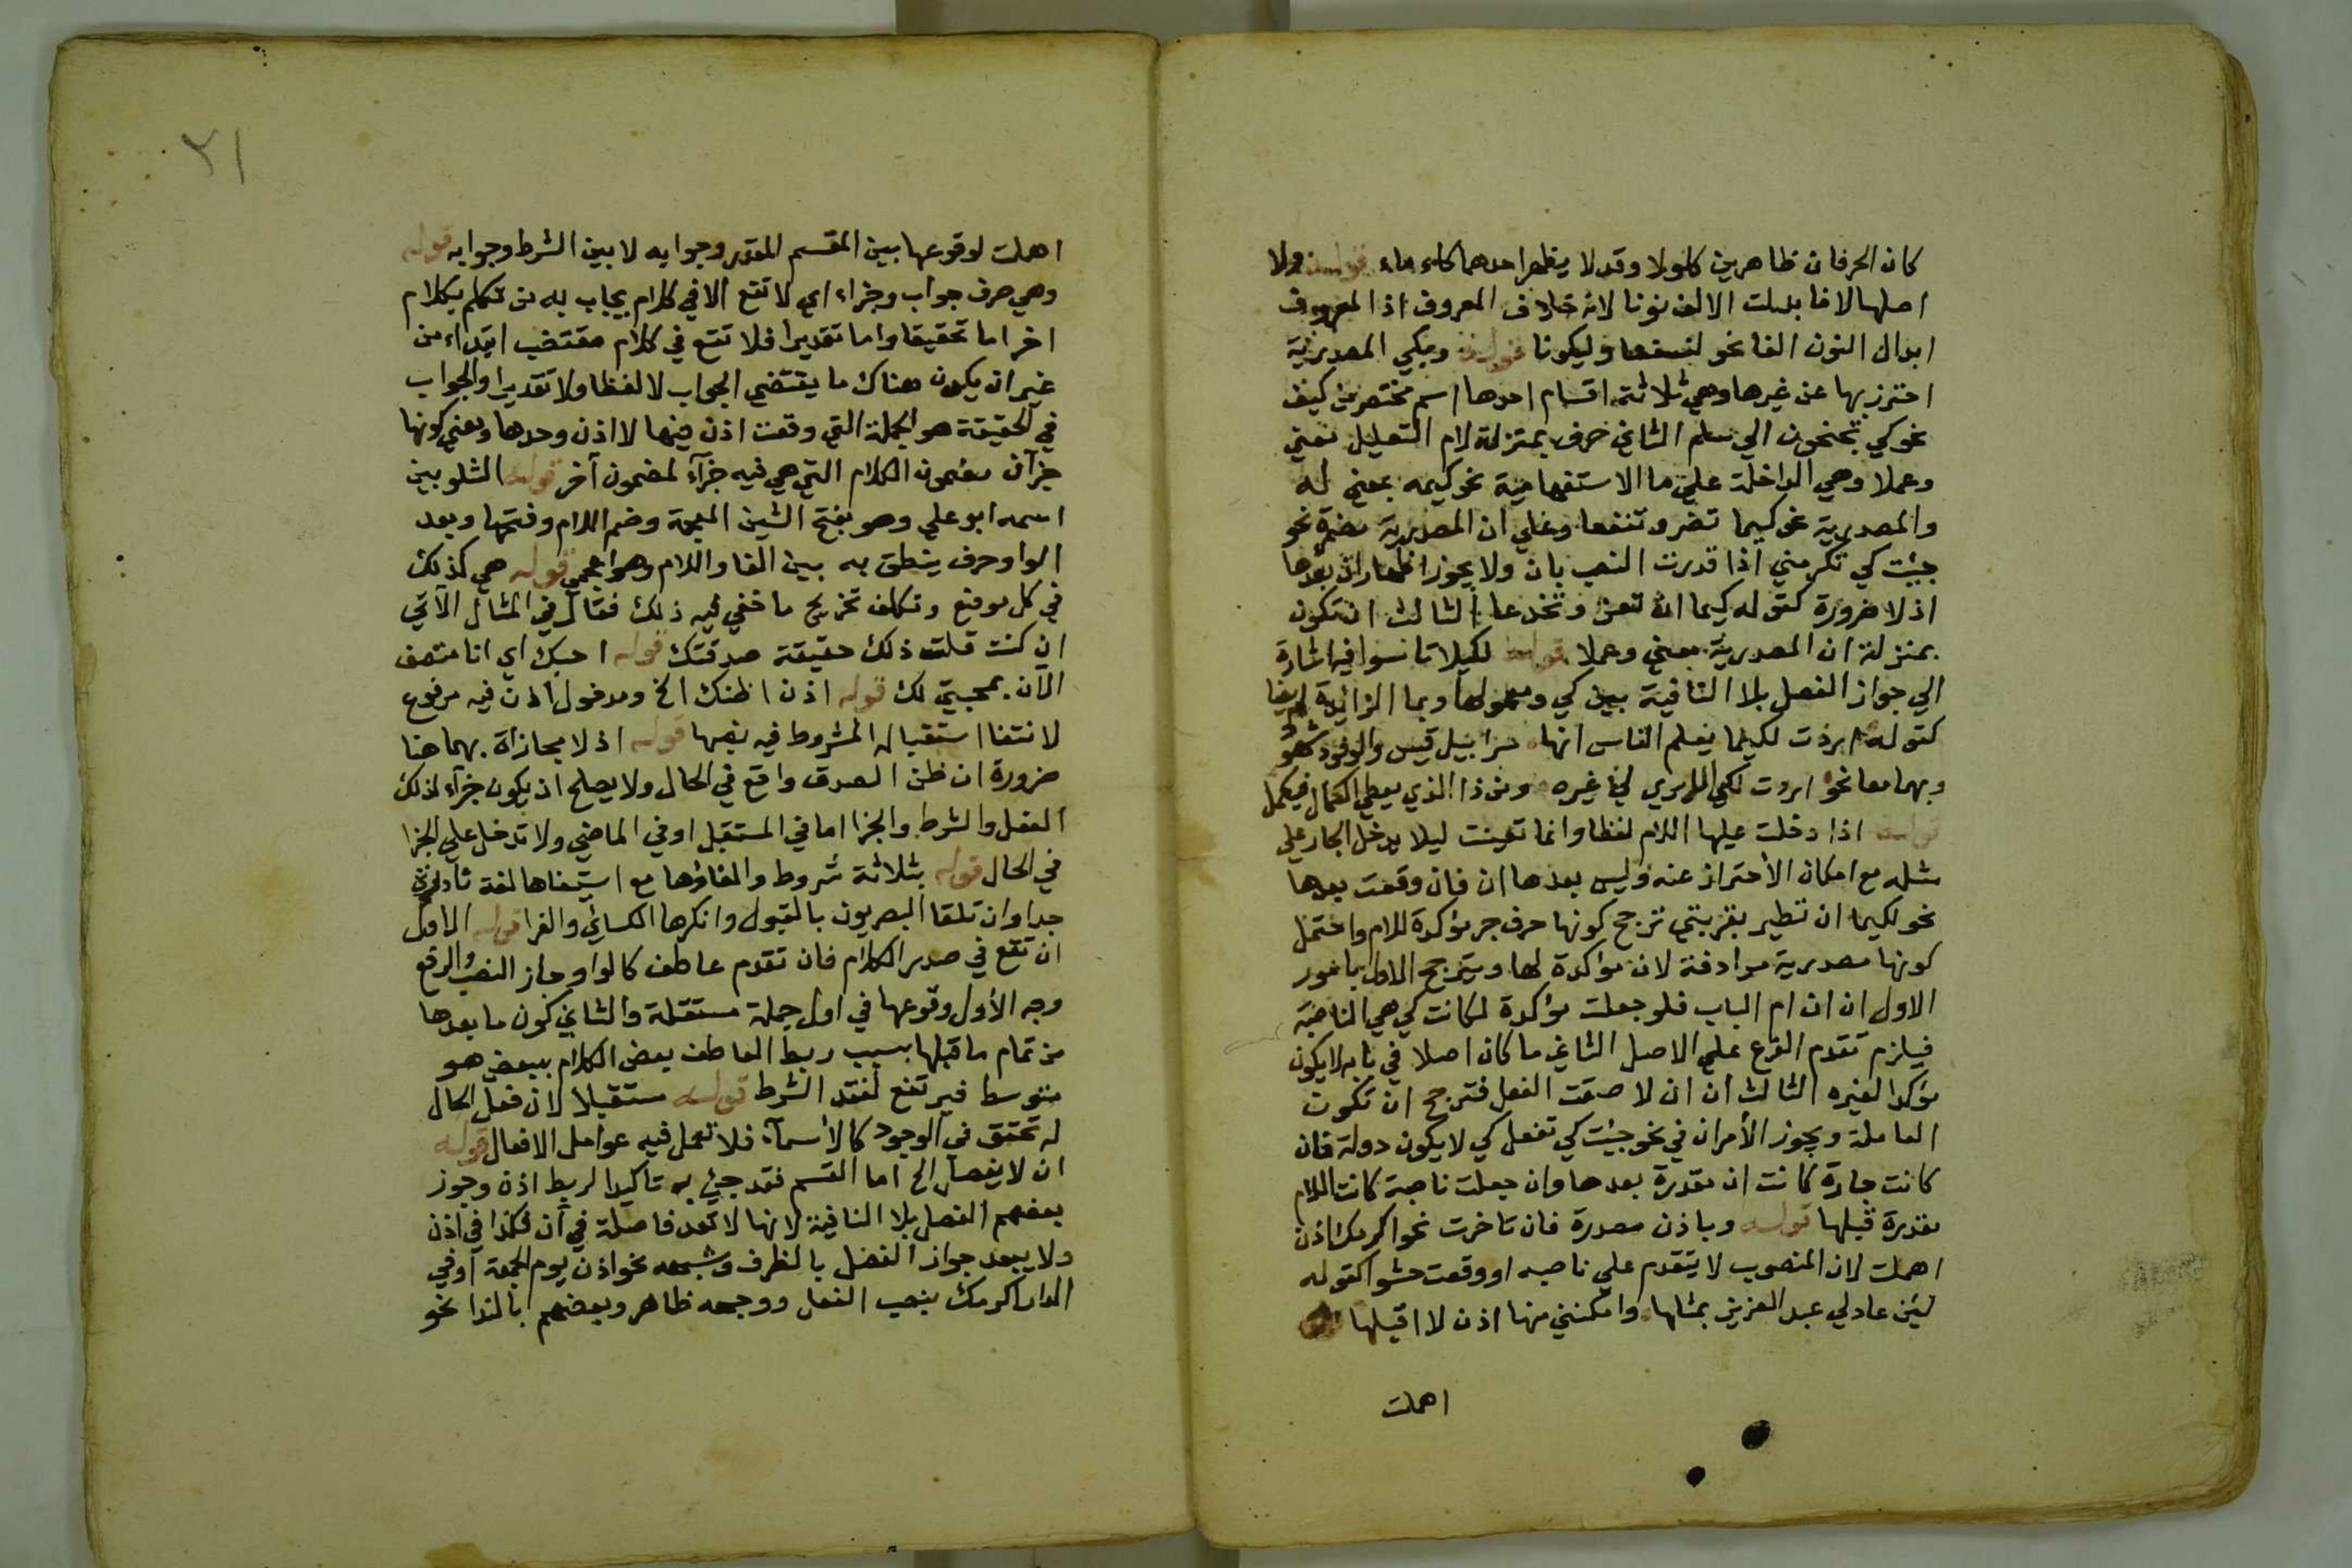 كان الحرفان ظاهرين كلولا وقد لا يظهر احدهما كماء ماء قوله ولا
اصلها لا فابدلت الالف نونا لانه خلاف المعروف اذ المعروف
ابدال النون الفا نحو لنسفعا وليكونا قوله وبكي المصدرية
احترز بها عن غيرها وهي ثلاثة اقسام احدها اسم مختصر من كيف
نحو كي تجنحون الي سلم الثاني حرف بمنزلة لام التعليل معني
وعملا وهي الداخلة علي ما الاستفهامية نحو كيمه بمعني له
والمصدرية نحو كيما تضر وتنفعا وعلي ان المصدرية مضمرة نحو
جيت كي تكرمني اذا قدرت النصب بان ولا يجوز اظهار ان بعدها
اذ لا ضرورة كقوله كيما ان تغر وتخدعا الثالث ان تكون
بمنزلة ان المصدرية معني وعملا قوله لكيلا تاسوا فيه اشارة
الي جواز الفصل بلا النافية بين كي ومعمولها وبما الزائدة ايضا
كقوله اردت لكيما يعلم الناس انها سراويل قيس والوفود شهود
وبهما معا نحو اردت لكي غيره ومن ذا الذي يعطي الكمال فيكمل
قوله اذا دخلت عليها اللام لفظا وانما تعينت ليلا يدخل الجار علي
مثله مع امكان الاحتراز عنه وليس بعدها ان فان وقعت بعدها
نحو لكيما ان تطير بقربتي ترجح كونها حرف جر مؤكدة للام واحتمل
كونها مصدرية مرادفة لان مؤكدة لها ويترجح الاول بامور
الاول ان ان ام الباب فلو جعلت مؤكدة لكانت كي هي الناصبة
فيلزم تقدم الفرع علي الاصل الثاني ما كان اصلا في بابه لا يكون
مؤكدا لغيره الثالث ان ان لاصقت الفعل فترجح ان تكون
العاملة ويجوز الأمران في نحو جيئت كي تفعل كي لا يكون دولة فان
كانت جارة كانت ان مقدرة بعدها وان جعلت ناصبة كانت اللام
مقدرة قبلها قوله وباذن مصدرة فان تاخرت نحو اكرمك اذن
اهملت لان المنصوب لا يتقدم علي ناصبه او وقعت حشوا كقوله
لئن عاد لي عبد العزيز بمثلها وامكنني منها اذن لا اقيلها
اهملت
٢١
اهملت لوقوعها بين القسم المقدر وجوابه لا بين الشرط وجوابه قوله
وهي حرف جواب وجزاء اي لا تقع الا في كلام يجاب به من تكلم بكلام
اخر اما تحقيقا واما تقديرا فلا تقع في كلام مقتضب ابتداء من
غير ان يكون هناك ما يقتضي الجواب لا لفظا ولا تقديرا والجواب
في الحقيقة هو الجملة التي وقعت اذن فيها لا اذن وحدها ومعني كونها
جزآء ان مضمون الكلام التي هي فيه جزآء لمضمون آخر قوله الشلوبين
اسمه ابو علي وهو بفتح الشين المعجمة وضم اللام وفتحها وبعد
الواو حرف ينطق به بين الفا واللام وهو اعجمي قوله هي كذلك
في كل موقع وتكلف تخريج ما خفي فيه ذلك فقال في المثال الآتي
ان كنت قلت ذلك حقيقة صدقتك قوله احبك اي انا متصف
الآن بمحبتي لك قوله اذن اظنك الخ ومدخول اذن فيه مرفوع
لانتفا استقباله المشروط فيه نصبها قوله اذ لا مجازاة بهما هنا
ضرورة ان ظن الصدق واقع في الحال ولا يصلح ان يكون جزآء لذلك
الفعل والشرط والجزا اما في المستقبل او في الماضي ولا تدخل علي الجزا
في الحال قوله بثلاثة شروط والغاؤها مع استيفاها لغة نادرة
جدا وان تلقا البصريون بالقبول وانكرها الكسائي والفرا قوله الاول
ان تقع في صدر الكلام فان تقدم عاطف كالواو جاز النصب والرفع
وجه الأول وقوعها في اول جملة مستقلة والثاني كون ما بعدها
من تمام ما قبلها بسبب ربط العاطف بعض الكلام ببعض هو
متوسط فيرتفع لفقد الشرط قوله مستقبلا لان فعل الحال
له تحقق في الوجود كالأسمآء فلا تعمل فيه عوامل الافعال قوله
ان لا يفصل الخ اما القسم فقد جيئ به تاكيدا لربط اذن وجوز
بعضهم الفصل بلا النافية لانها لا تعد فاصلة في أن فكذا في اذن
ولا يبعد جواز الفصل بالظرف وشبهه نحو اذن يوم الجمعة او في
الدار اكرمك بنصب الفعل ووجهه ظاهر وبعضهم بالندا نحو